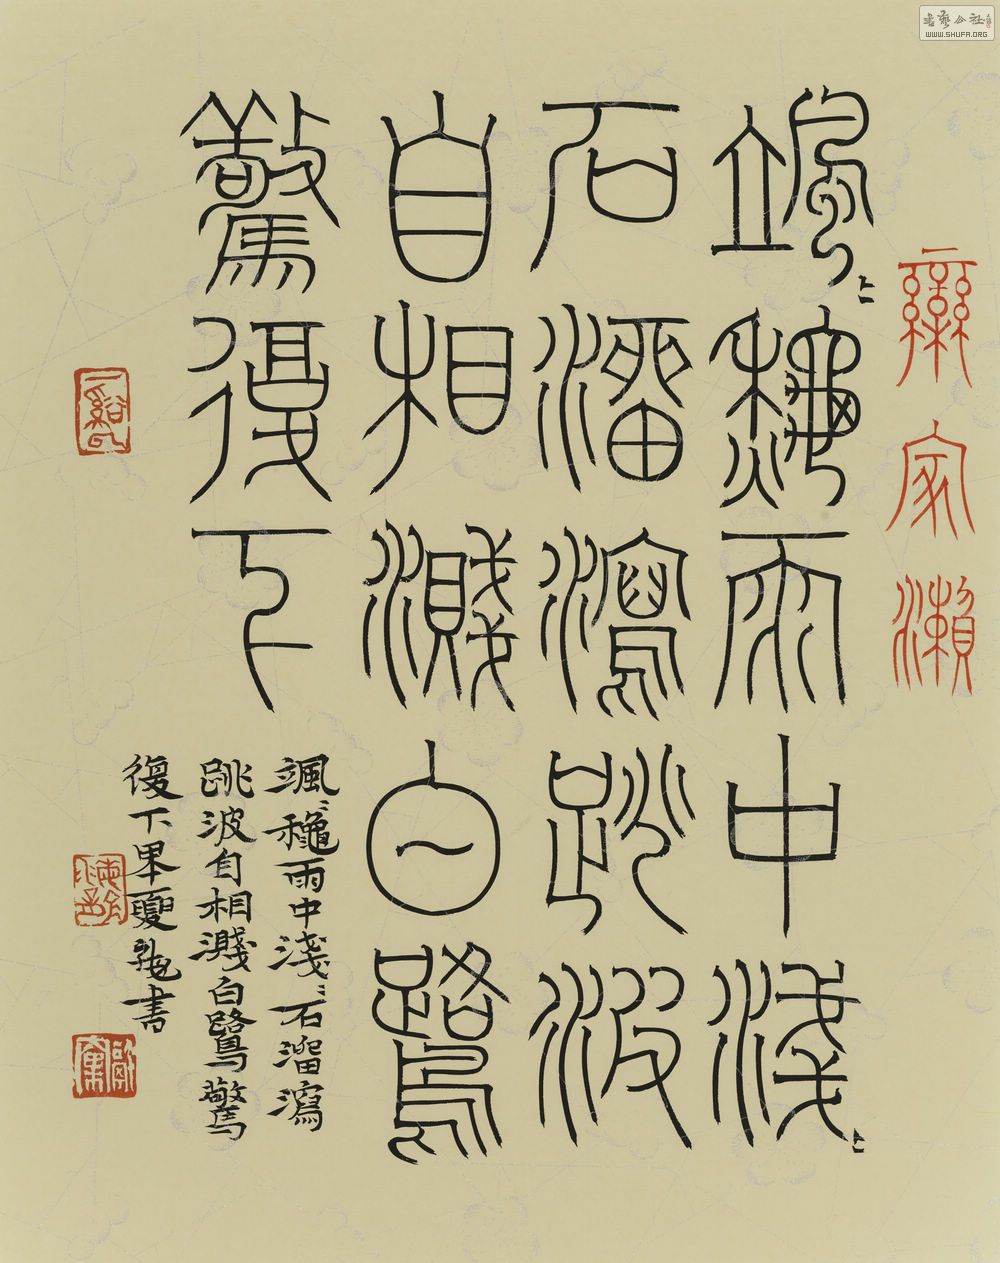 欒家瀨
颯〻龝雨中淺〻
石溜瀉跳波
自相濺白鷺
驚復下
颯〻龝雨中淺〻石溜瀉
跳波自相濺白鷺驚
復下 書
WWW.SHUFA.ORG